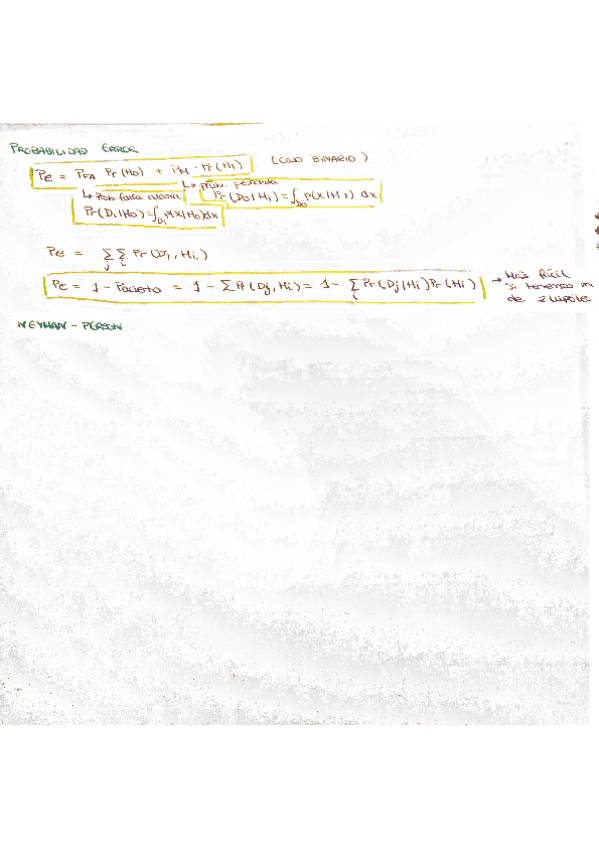 PROBABILIDAD ERROR
Pe = PFA Pr(H0) + PM · Pr(H1) (CASO BINARIO)
↳ Prob. falsa alarma ↳ prob. perdida
Pr(D1|H0)=∫D1 p(x|H0)dx Pr(D0|H1)=∫D0 p(x|H1) dx
Pe = ∑j ∑i Pr(Dj, Hi)
Pe = 1 - Pacierto = 1 - ∑ Pr(Dj, Hi) = 1 - ∑i Pr(Dj|Hi)Pr(Hi) → Más fácil
si tenemos
de 2 hipóte
NEYMAN - PERSON